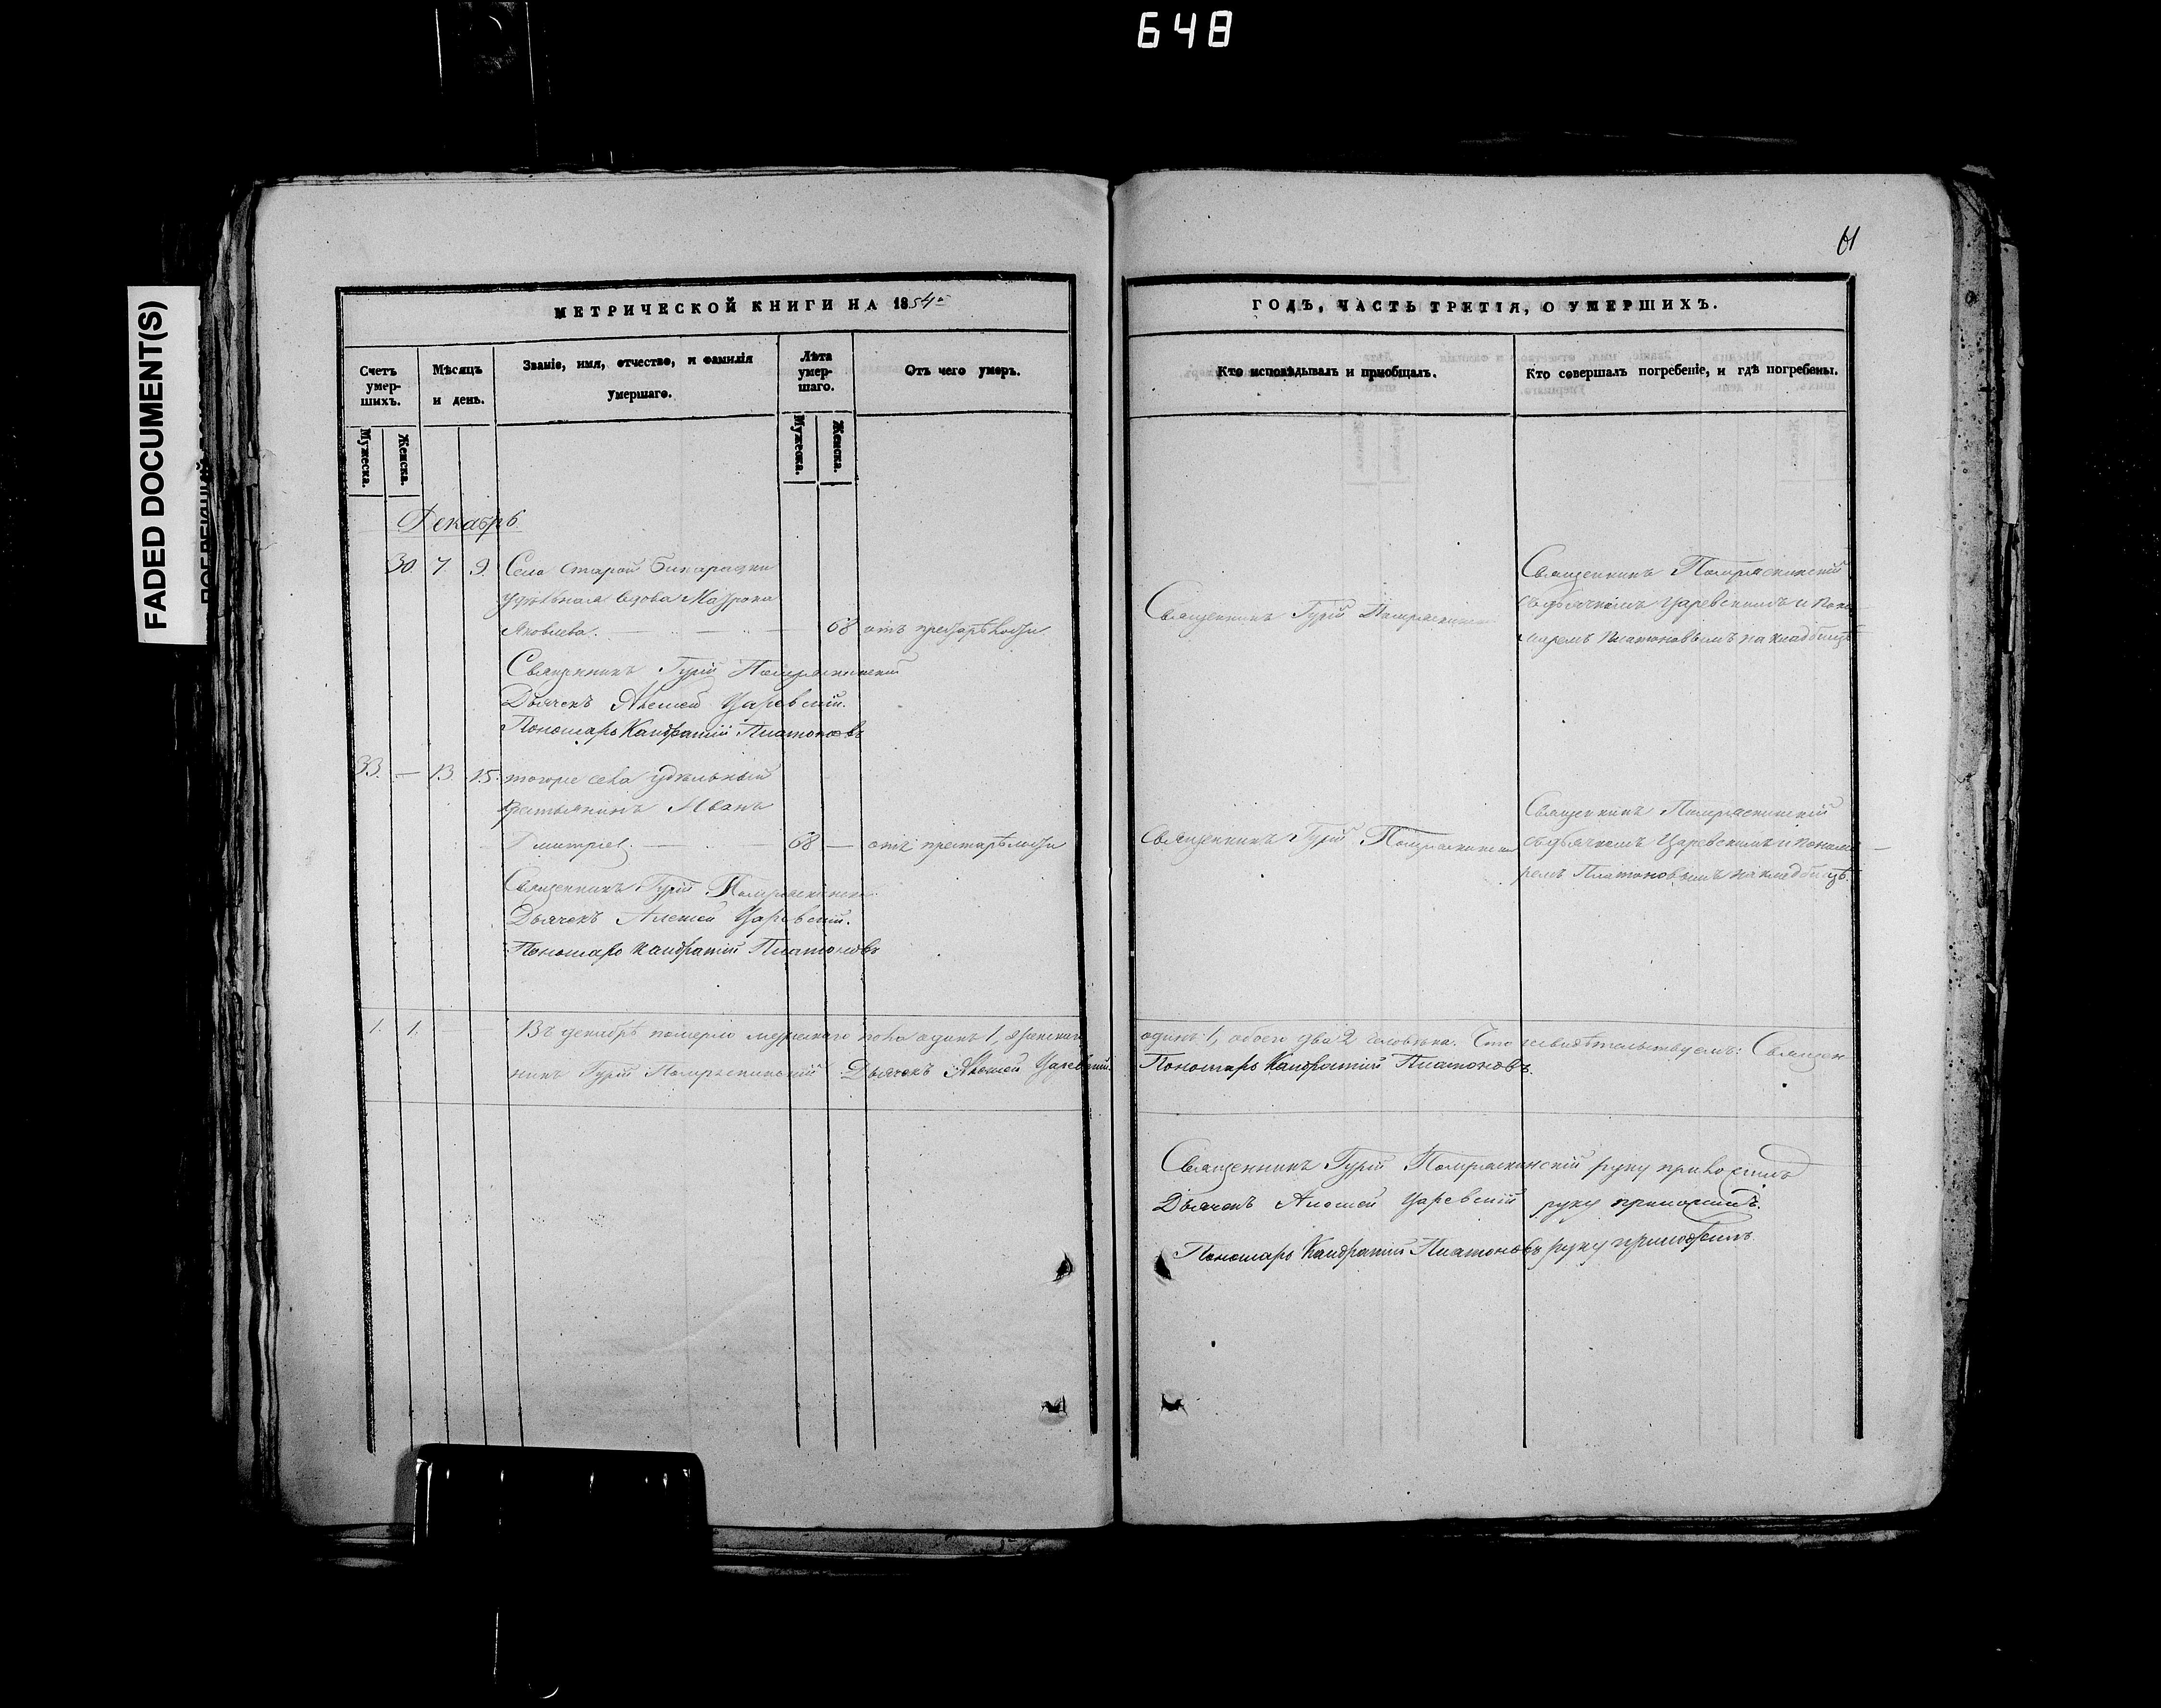 648
FADED DOCUMENT(S)
61
МЕТРИЧЕСКОЙ КНИГИ НА 1854
ГОДЪ, ЧАСТЬ ТРЕТІЯ, О УМЕРШИХЪ.
Счетъ умер-шихъ.
Мѣсяцъ и день.
Званіе, имя, отчество, и фамилія умершаго.
Лѣта умер-шаго.
Отъ чего умеръ.
Кто исповѣдывалъ и пріобщалъ.
Кто совершалъ погребеніе, и гдѣ погребены.
Мужеска.
Женска.
Мужеска.
Женска.
Декабрь
30 7. 9. Села Старой
удѣльная вдова Матрона
Яковлева. 68 отъ престарѣлости
Священникъ Гурій
Священникъ
съ дьячкомъ Царевскимъ и поно
маремъ Платоновымъ на кладбищѣ
Священникъ Гурій
Дьячекъ Алексей Царевскій.
Пономарь Кандратій Платоновъ
33. — 13 15. тогоже села удѣльный
крестьянинъ Иванъ
Дмитріев. 68 — отъ престарѣлости
Священникъ Гурій
Священникъ
съ дьячкомъ Царевскимъ и понома
ремъ Платоновымъ на кладбищѣ.
Священникъ Гурій
Дьячекъ Алексей Царевскій.
Пономарь Кандратій Платоновъ
1. 1. Въ декабрѣ померло мужескаго пола одинъ 1, женскаго
одинъ 1, обоего два 2 человѣка. Что свидѣтельствуемъ: Священ
никъ Гурій Дьячекъ Алексей Царевскій.
Пономарь Кандратій Платоновъ.
Священникъ Гурій руку приложилъ
Дьячекъ Алексей Царевскій руку приложилъ.
Пономарь Кандратій Платоновъ руку приложилъ